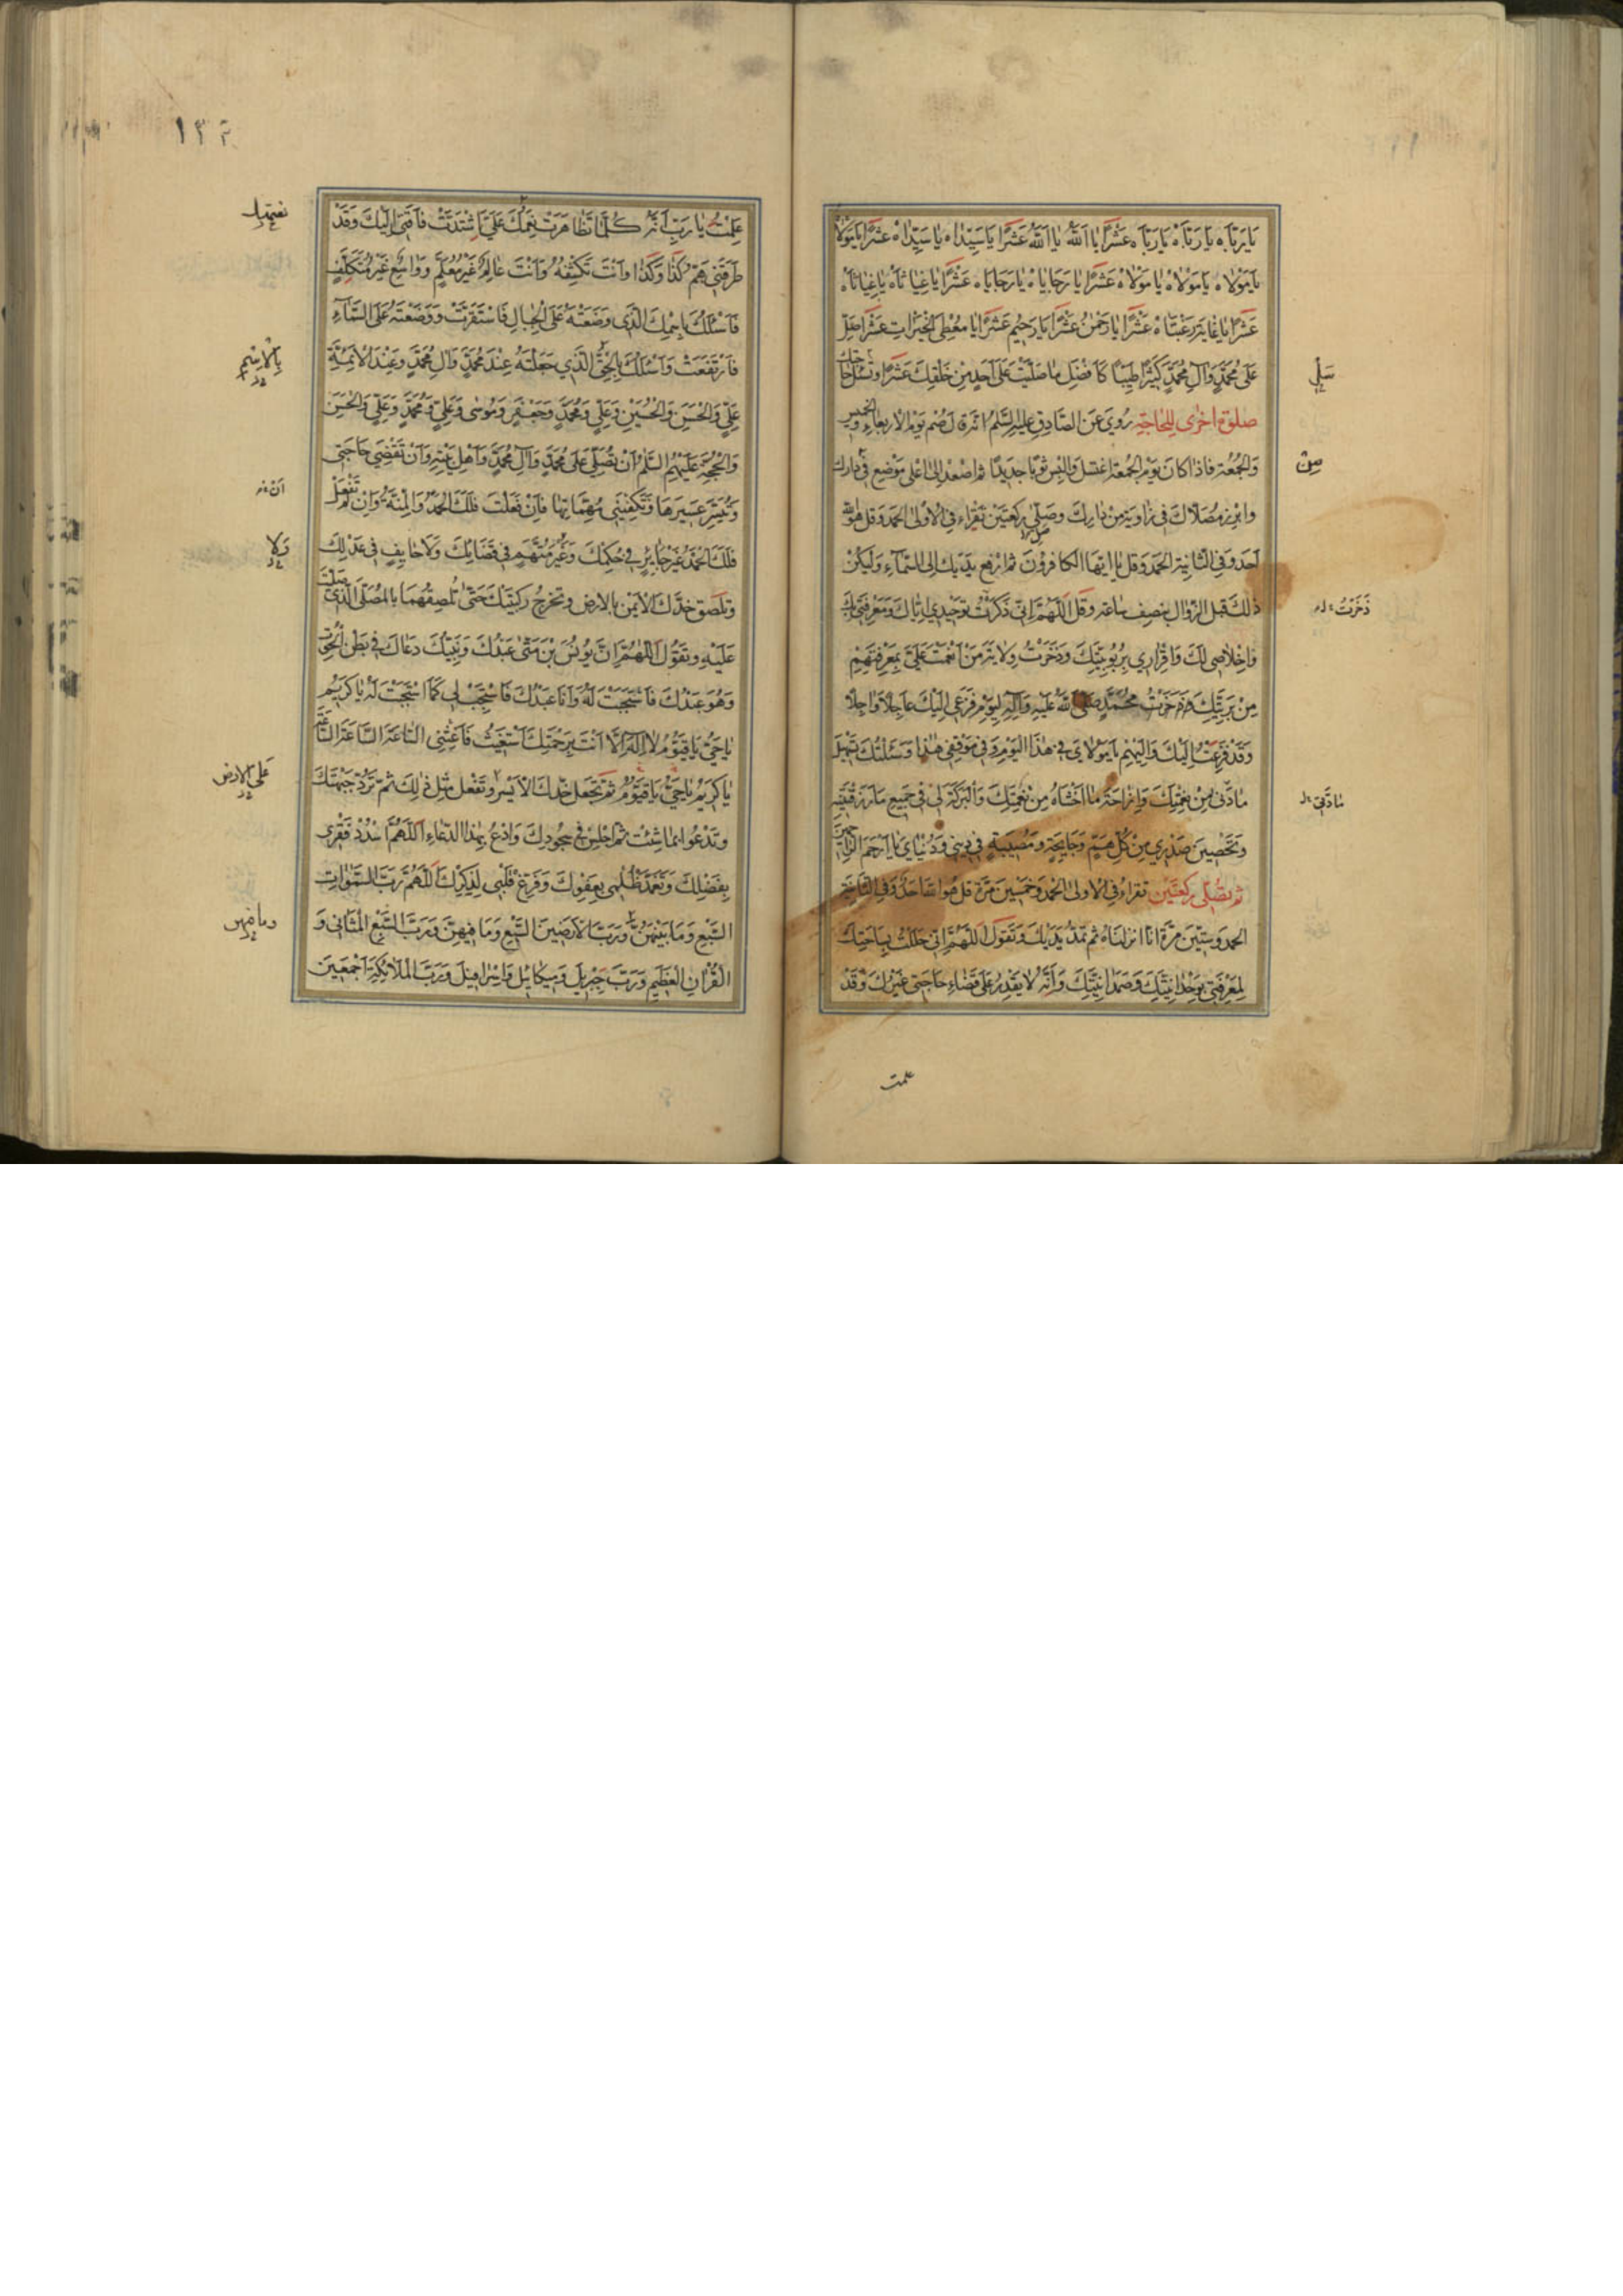 يا رباه يا رباه يا رباه عشرا يا الله يا الله عشرا يا سيداه يا سيداه عشرا يا مولاه
يا مولاه يا مولاه يا مولاه عشرا يا رجاياه يا رجاياه عشرا يا غياثاه يا غياثاه
عشرا يا غاية رغبتاه عشرا يا رحمن عشرا يا رحيم عشرا يا معطي الخيرات عشرا صل
على محمد وال محمد كثيرا طيبا كافضل ما صليت على احد من خلقك عشرا وتسئل حاجتك
سل
صلوة اخرى للحاجة روي عن الصادق عليه السلم انه قال صم يوم الاربعاء والخميس
والجمعة فاذا كان يوم الجمعة اغتسل والبس ثوبا جديدا ثم اصعد الى اعلى موضع في دارك
من
وابرز مصلاك في زاوية من دارك وصل ركعتين تقراء في الاولى الحمد وقل هو الله
احد وفي الثانية الحمد وقل يا ايها الكافرون ثم ارفع يديك الى السماء وليكن
ذلك قبل الزوال بنصف ساعة وقل اللهم اني ذكرت توحيدي اياك ومعرفتي بك
ذخرت
واخلاصي لك واقراري بربوبيتك وذخرت ولاية من انعمت علي بمعرفتهم
من بريتك محمد صلى الله عليه واله ليوم فزعي اليك عاجلا واجلا
وقد فزعت اليك واليهم يا مولاي في هذا اليوم وفي موقفي هذا وسئلتك
من نعمتك وازاحة ما اخشاه من نقمتك والبركة لي في جميع ما رزقتنيه
وتحصين صدري من كل هم وجايحة ومصيبة في ديني ودنياي يا ارحم الراحمين
ثم تصلي ركعتين تقراء في الاولى الحمد وخمسين مرة قل هو الله احد وفي الثانية
الحمد وستين مرة انا انزلناه ثم تمد يديك وتقول اللهم اني حللت بساحتك
لمعرفتي بوحدانيتك وصمدانيتك وانه لا يقدر على قضاء حاجتي غيرك وقد
علمت
علمت يا رب انه كلما تظاهرت نعمك علي اشتدت فاقتي اليك وقد
طرقني هم كذا وكذا وانت تكشفه وانت عالم غير معلم وواسع غير متكلف
فاسئلك باسمك الذي وضعته على الجبال فاستقرت ووضعته على السماء
فارتفعت واسئلك بالحق الذي جعلته عند محمد وال محمد وعند الائمة
بالاسم
علي والحسن والحسين وعلي ومحمد وجعفر وموسى وعلي ومحمد وعلي والحسن
والحجة عليهم السلم ان تصلي على محمد وال محمد واهل بيته وان تقضي حاجتي
وتيسر عسيرها وتكفيني مهماتها فان فعلت فلك الحمد والمنة وان لم تفعل
ان
فلك الحمد غير جاير في حكمك وغير متهم في قضائك ولا حايف في عدلك
ولا
وتلصق خدك الايمن بالارض وتخرج ركبتيك حتى تلصقهما بالمصلى الذي صليت
عليه وتقول اللهم ان يونس بن متى عبدك ونبيك دعاك في بطن الحوت
وهو عبدك فاستجبت له وانا عبدك فاستجب لي كما استجبت له يا كريم
يا حي يا قيوم لا اله الا انت برحمتك استغيث فاغثني الساعة الساعة الساعة
يا كريم يا حي يا قيوم ثم تجعل خدك الايسر وتفعل مثل ذلك ثم ترد جبهتك
على الارض
وتدعوا بما شئت ثم اجلس في سجودك وادع بهذا الدعاء اللهم اسدد فقري
بفضلك وتغمد ظلمي بعفوك وفرغ قلبي لذكرك اللهم رب السموات
السبع وما بينهن ورب الارضين السبع وما فيهن ورب السبع المثاني و
وما فيهن
القران العظيم ورب جبريل وميكائيل واسرافيل ورب الملائكة اجمعين